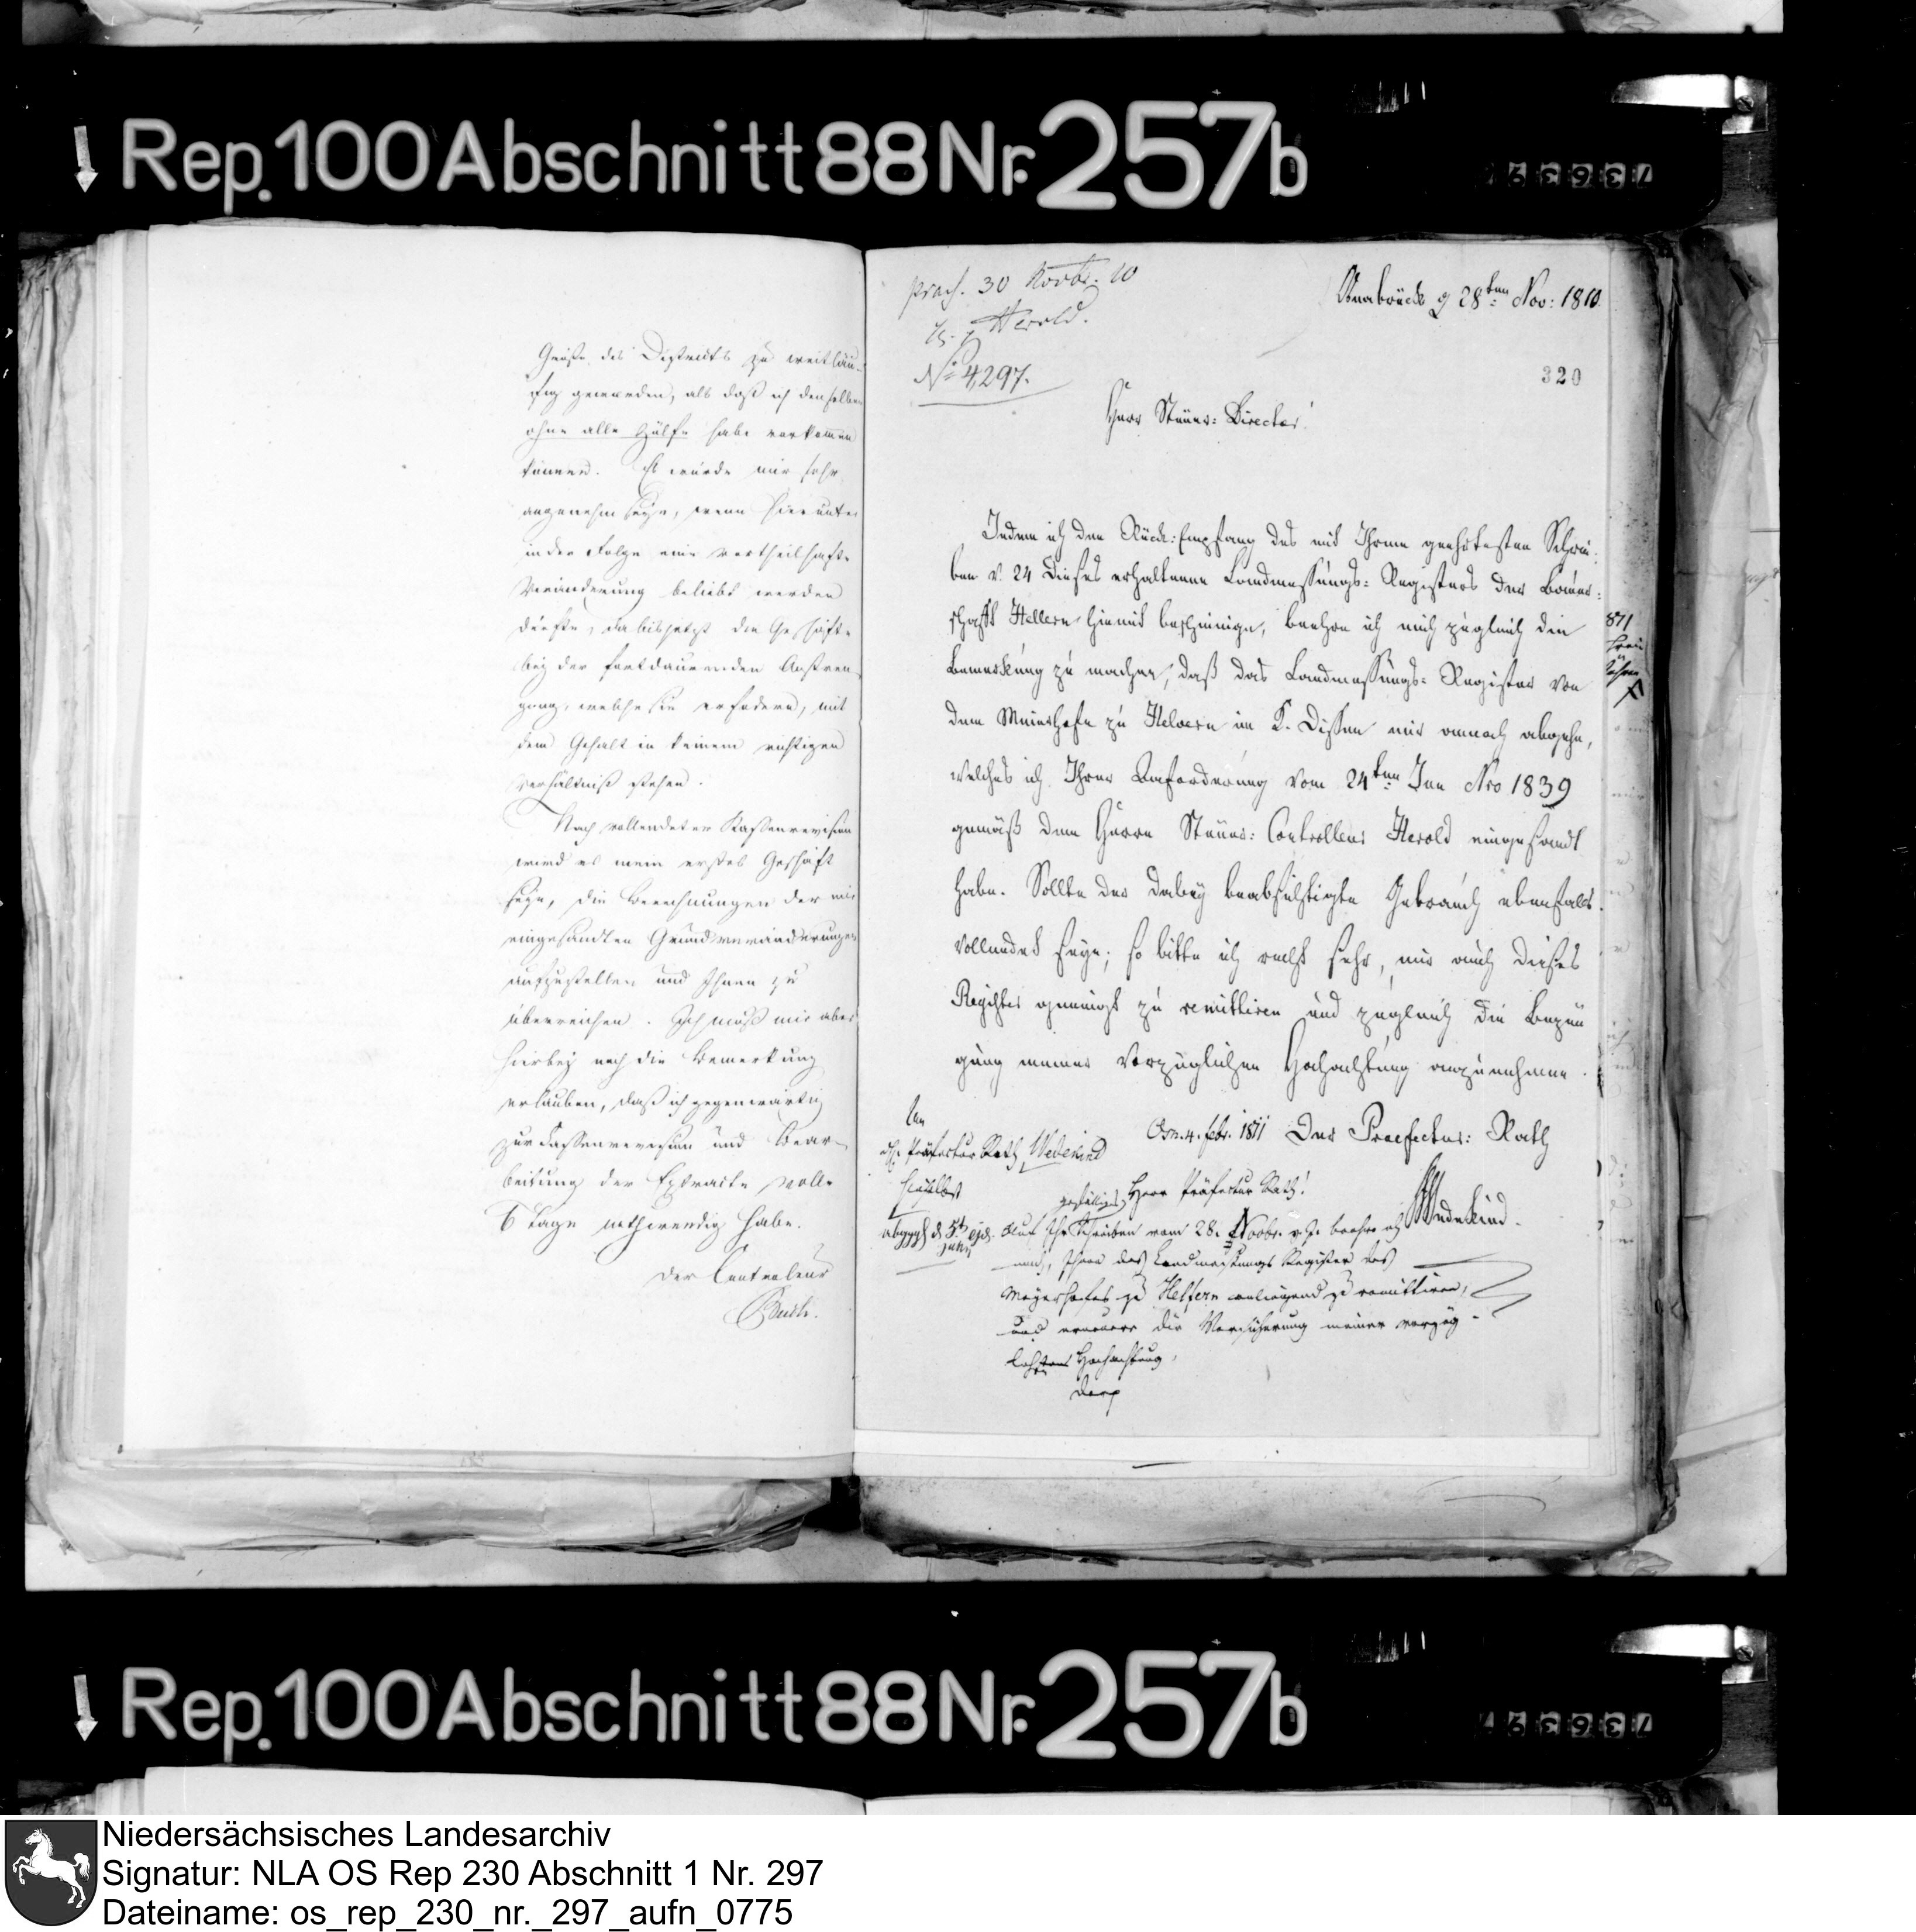 Rep. 100 Abschnitt 88 Nr. 257b
73639
Größe des Districts zu weitläu-
fig geworden, als daß ich denselben
ohne alle Hülfe habe vorkommen
können. Es würde mir sehr
angenehm seyn, wenn hierunter
in der Folge eine vortheilhafte
Veränderung beliebt werden
dürfte, da bis jetzt die Geschäfte
bey der fortdauernden Anstren-
gung, welche sie erfodern, mit
dem Gehalt in keinem richtigen
Verhältniß stehen.
Nach vollendeter Kassenrevision
wird es mein erstes Geschäft
seyn, die Berechnungen der mir
eingesandten Grundveränderungen
aufzustellen und Ihnen zu
überreichen. Ich muß mir aber
hierbey noch die Bemerkung
erlauben, daß ich gegenwärtig
zur Cassenrevision und Bear-
beitung der Extracte volle
6 Tage nothwendig habe.
Der Controleur
praes. 30 Novbr. 10
Herold.
No 4297.
Osnabrück d 28ten Nov: 1810
320
Herr Steuer: Director!
Indem ich den Rück: Empfang des mit Ihrem geehrtesten Schrei-
ben v. 24 dieses erhaltenen Landmessungs: Registers der Bauer:
schaft Hellern hiemit bescheinige, beehre ich mich zugleich die
Bemerkung zu machen, daß das Landmessungs: Register von
dem Meierhofe zu Helvern im K. Dissen mir annoch abgehe,
welches ich Ihrer Anforderung vom 24ten Jun No 1839
gemäß dem Herrn Steuer: Controlleur Herold eingesandt
habe. Sollte der dabey beabsichtigte Gebrauch ebenfalls
vollendet seyn; so bitte ich recht sehr, mir auch dieses
Register geneigt zu remittiren und zugleich die Bezeu
gung meiner vorzüglichen Hochachtung anzunehmen.
Der Praefectur: Rath
Wedekind.
An
H. Präfectur Rath Wedekind
hieselbst
Osn. 4. febr. 1811
Herr Präfectur Rath!
gefälliges
Auf Ihr Schreiben vom 28. Novbr. v. J. beehre ich
mich, Ihnen das Landmessungs Register des
Meyerhofes zu Helfern anliegend zu remittiren,
und erneuere die Versicherung meiner vorzüg-
lichsten Hochachtung,
871
Rep. 100 Abschnitt 88 Nr. 257b
73639
Niedersächsisches Landesarchiv
Signatur: NLA OS Rep 230 Abschnitt 1 Nr. 297
Dateiname: os_rep_230_nr._297_aufn_0775